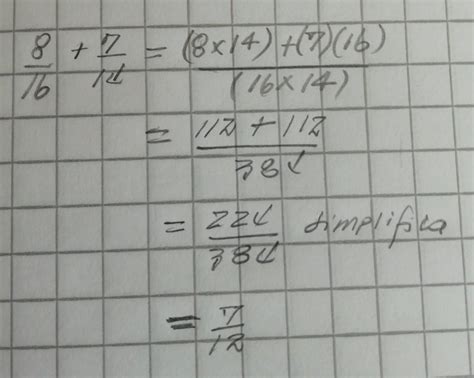 8/16 + 7/14 = (8x14)+(7)(16)/(16x14)
= 112 + 112/384
= 224/384 simplifica
= 7/12